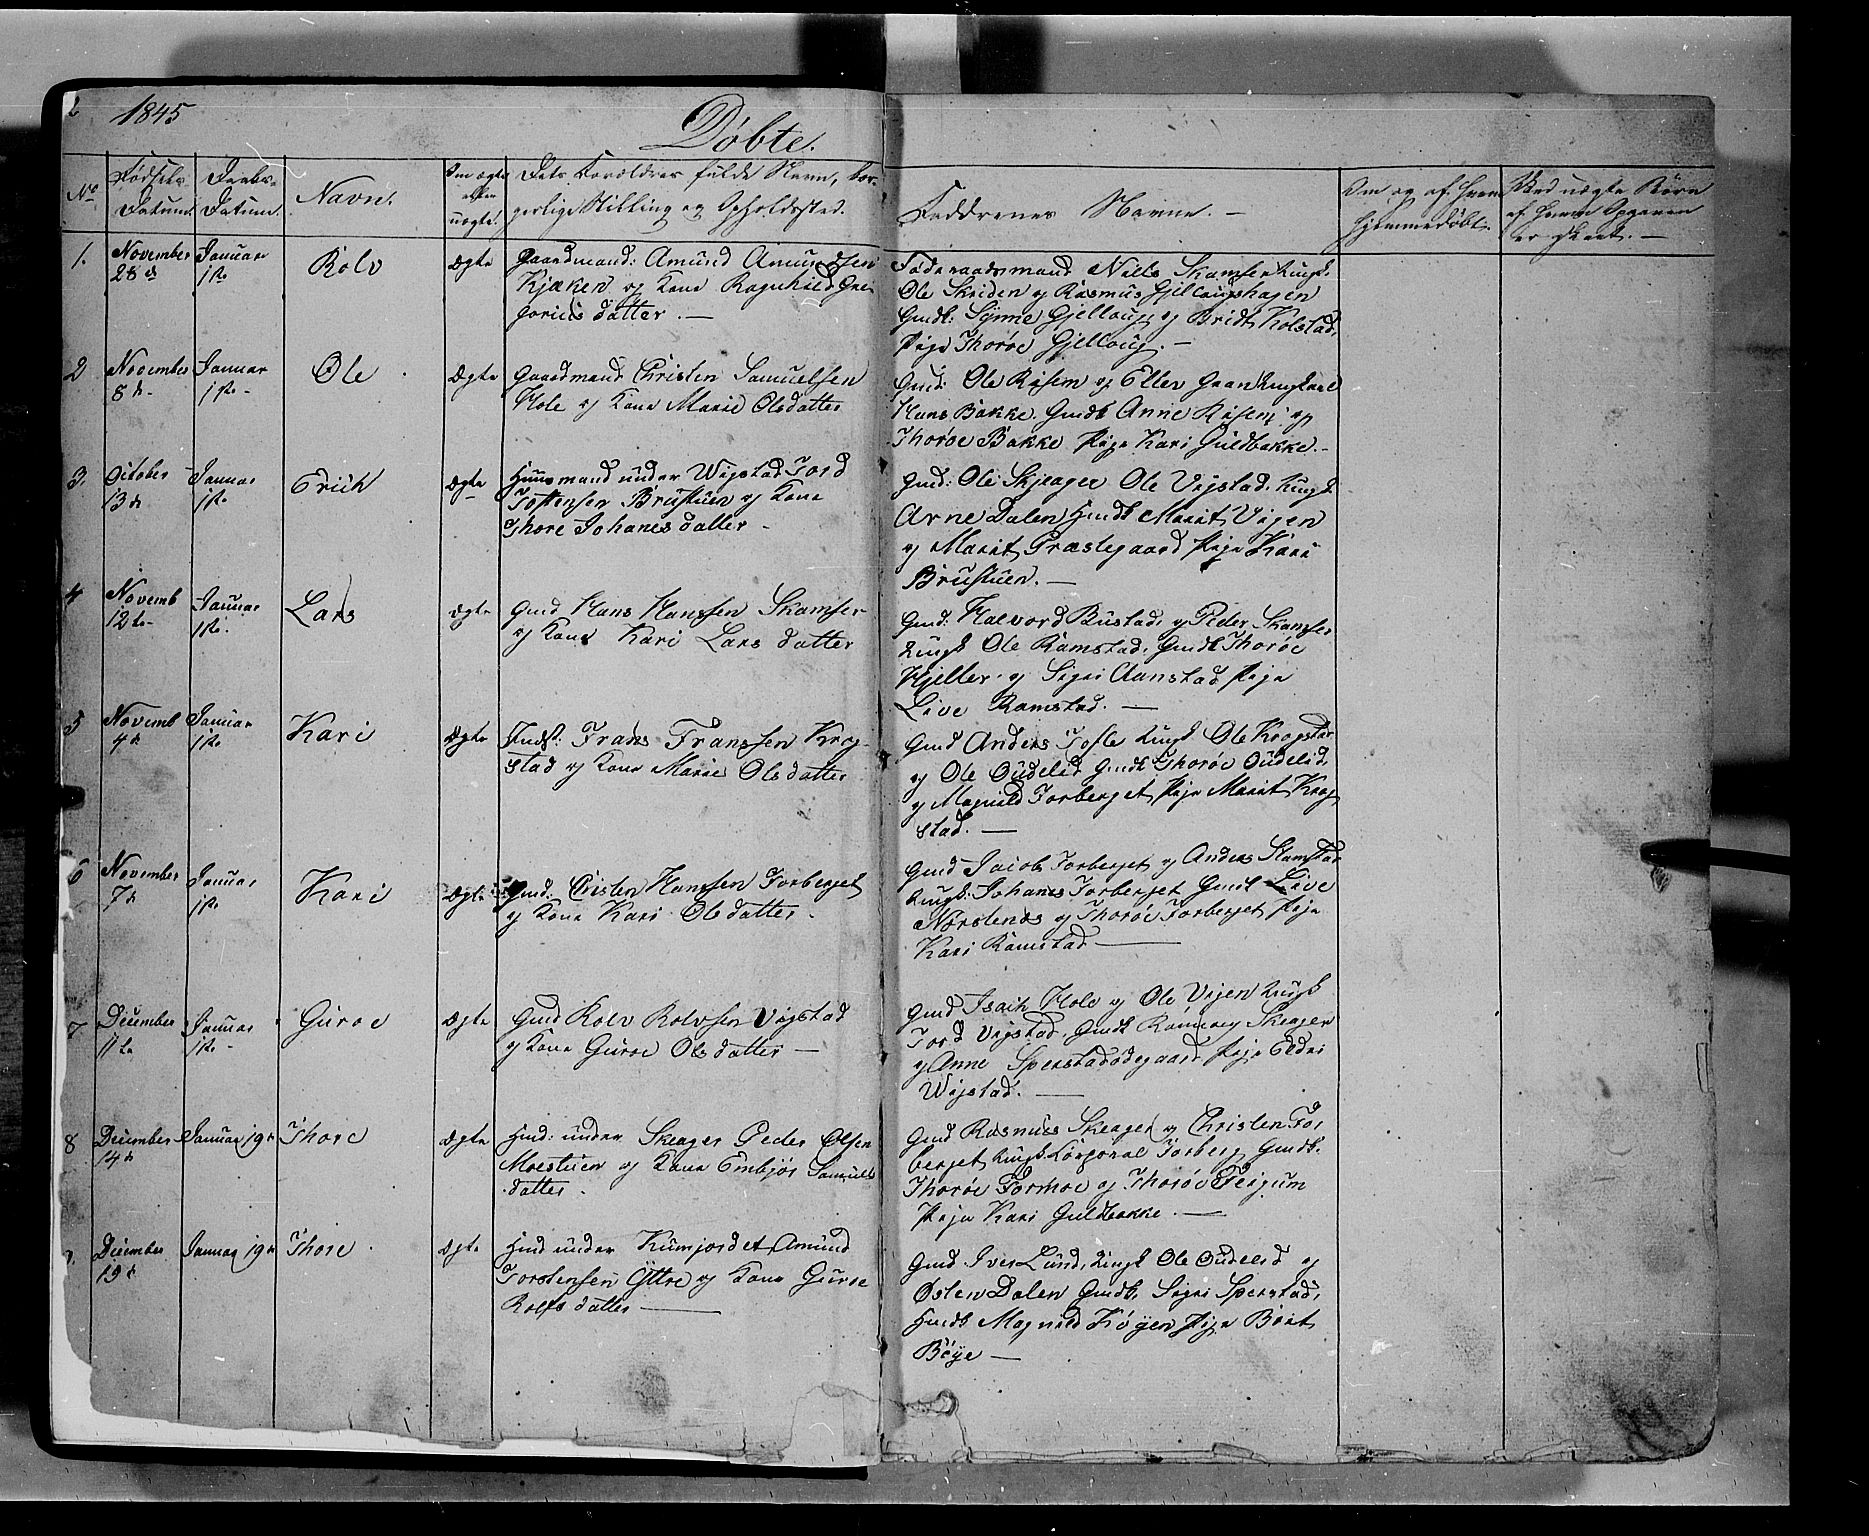 2 1845
Døbte.
No Fødsels Daabs- Navn. Om ægte Dets Forældres fulde Navn, bor-
Datum. Datum. eller gerlige Stilling og Opholdssted.
uægte.
Faddrenes Navne. — Om og af hvem Ved uægte Børn
hjemmedøbt. af hvem Opgaven
er skeet. —
1. November Januar Rolv ægte Gaardmand: Amund Amundsen
28de 1ste Kjæken og Kone Ragnhild Gre-
gorius datter. —
Føderaadsmand Niels Skamser Ungk.
Ole Skriden og Rasmus Gjellougshagen
Gmdk: Synne Gjelloug og Bridt Kolstad,
Pige Thoroe Gjelloug. —
2 November Januar Ole ægte Gaardmand Christen Samuelsen
8de 1ste Hole og Kone Marie Olsdatter
Gmd: Ole Risem og Eller Gaan Ungkarl
Hans Bakke. Gmdk Anne Risem og
Thoroe Bakke Pige Kari Guldbakke. —
3. October Januar Erich ægte Huusmand under Wigstad Tord
13de 1ste Tostensen Brustuen og Kone
Thore Johanes datter —
Gmd: Ole Skjeager Ole Vigstad. Ungk
Arne Dalen Hmdk Marit Vigen
og Marit Præstegaard Pige Kari
Brustuen. —
4 Novemb Januar Lars ægte Gmd Hans Hanssen Skamser
12te 1ste og Kone Kari Lars datter
Gmd: Halvord Bustad og Peder Skamser
Ungk Ole Ramstad. Gmdk Thoroe
Kjeller og Sigri Aanstad Pige
Live Ramstad. —
5 Novemb Januar Kari ægte Indst: Frans Franssen Krog-
4de 1ste stad og Kone Marie Olsdatter
Gmd Anders Tofte Ungk Ole Krogstad
og Ole Oudelid Gmdk Thoroe Oudelid
og Magnild Forberget Pige Marit Krog
stad. —
6 November Januar Kari ægte Gmd: Cristen Hanssen Forberget
7de 1ste og Kone Kari Olsdatter.
Gmd Jacob Forberget og Anders Stamstad
Ungk: Johanes Forberget Gmdk Live
Norstenes og Thoroe Forberget Pige
Kari Ramstad —
7 December Januar Guroe ægte Gmd Rolv Rolvsen Vigstad
11te 1ste og Kone Guroe Olsdatter —
Gmd Isaik Hole og Ole Vigen Ungk
Tord Vigstad. Gmdk Rønnoug Skeager
og Anne Sperstadødegaard Pige Eldri
Wigstad. —
8 December Januar 19de Thore ægte Hmd: under Skeager Peder Olsen
14de Moestuen og Kone Embjør Samuels
datter.
Gmd Rasmus Skeager og Christen For
berget Ungk Corporal Forberg Gmdk.
Thoroe Formoe og Thoroe Teigum
Pige Kari Guldbakke. —
December Januar 19de Thore. ægte Hmd under Kumjordet Amund
19de Torstensen Yttre og Kone Guroe
Rolfs datter —
Gmd Iver Lund, Ungk Ole Oudelid og
Østen Dalen Gmdk. Sigri Sperstad,
Hmdk Magnild Køyen Pige Børit
Böye —